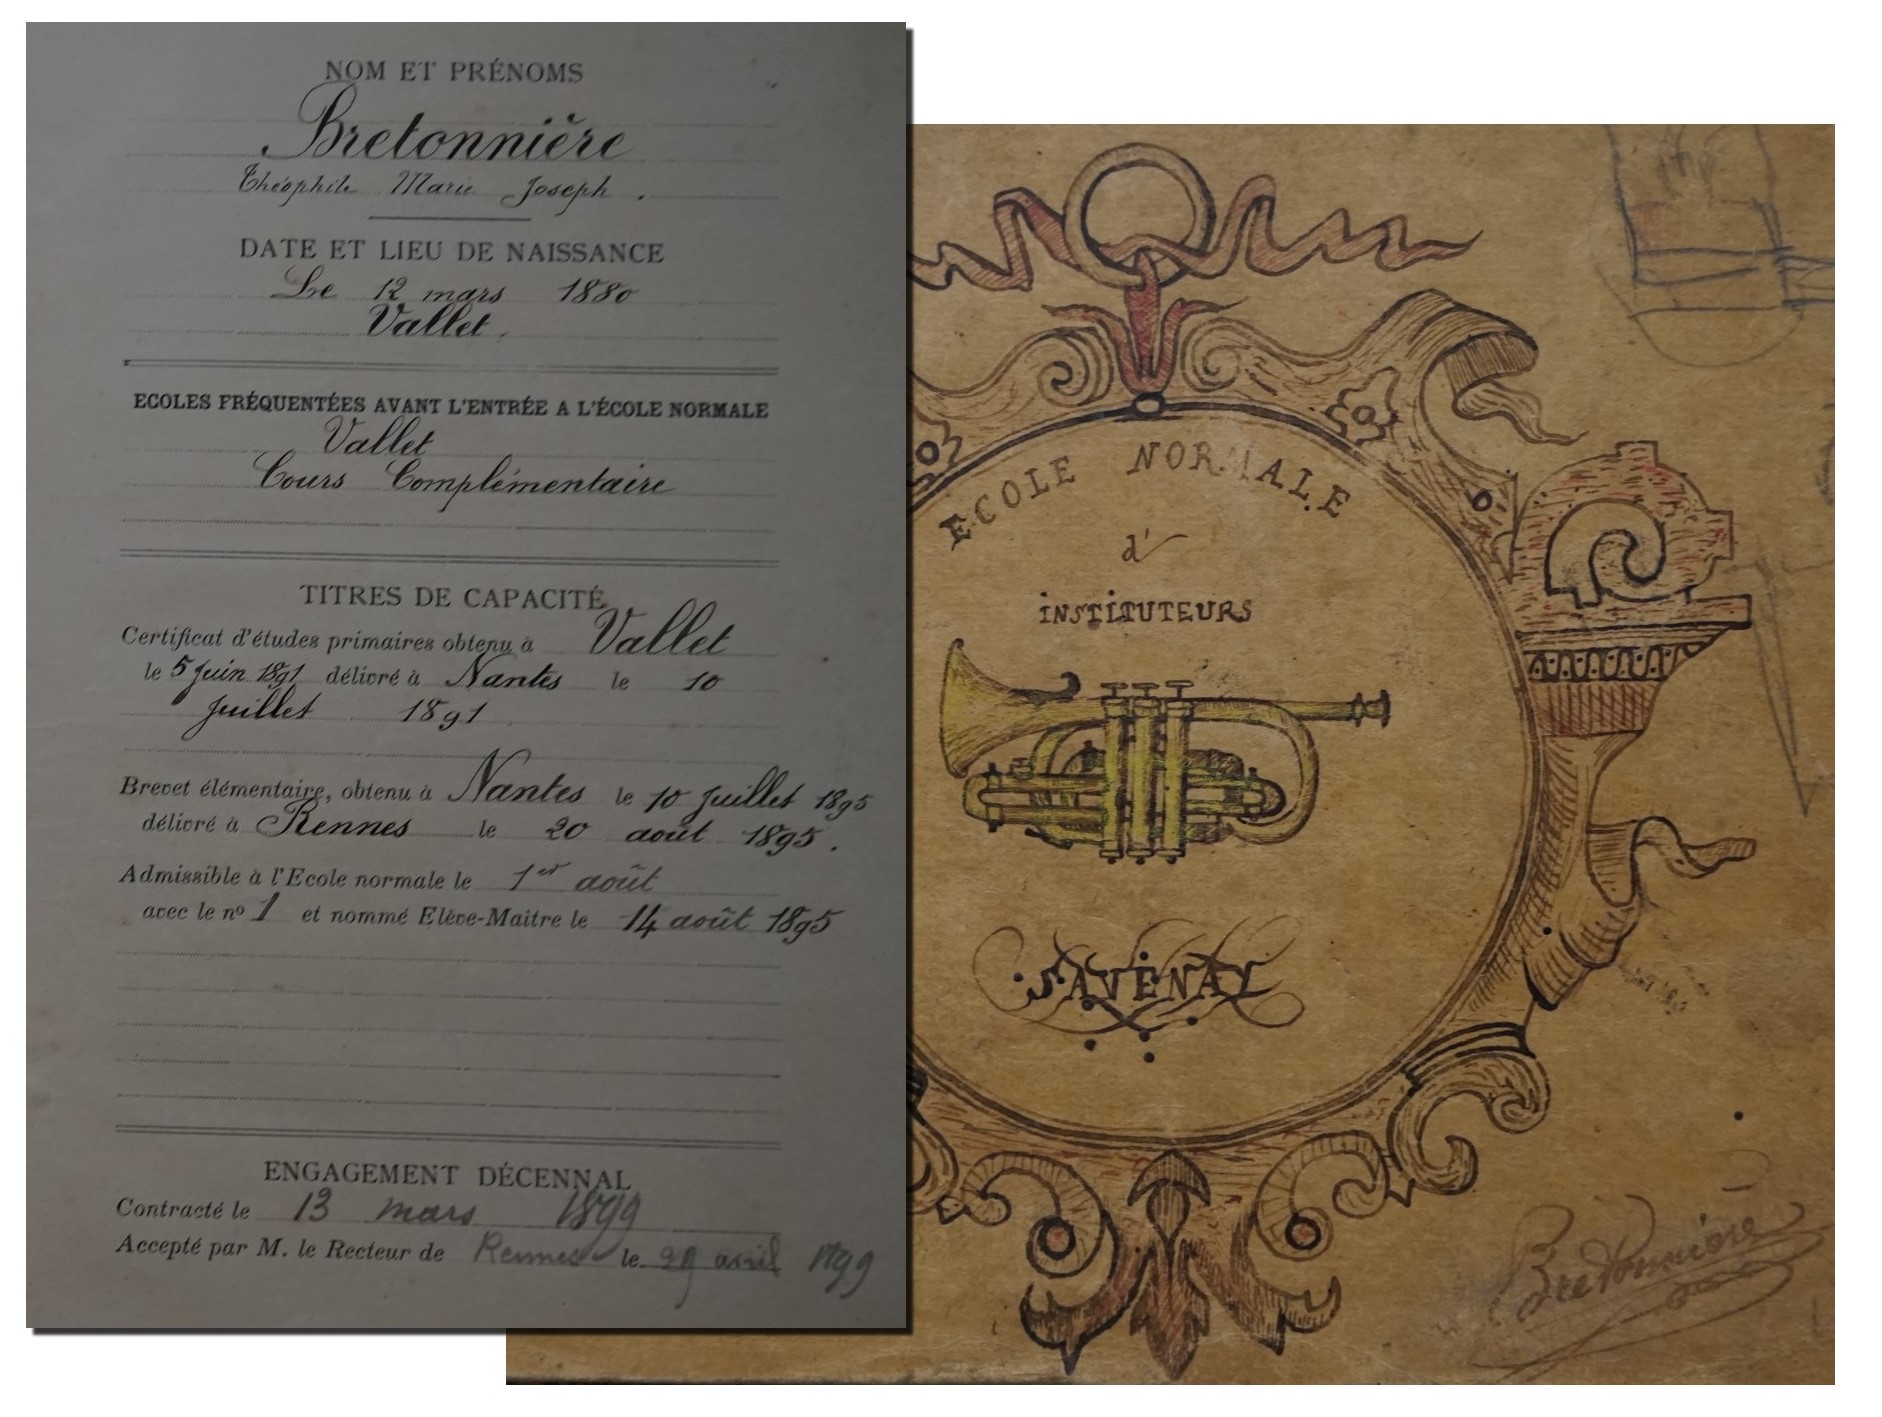 NOM ET PRÉNOMS
Bretonnière
Théophile Marie Joseph.
DATE ET LIEU DE NAISSANCE
Le 12 mars 1880
Vallet.
ECOLES FRÉQUENTÉES AVANT L'ENTRÉE A L'ÉCOLE NORMALE
Vallet
Cours Complémentaire
TITRES DE CAPACITÉ
Certificat d'études primaires obtenu à Vallet
le 5 Juin 1891 délivré à Nantes le 10
Juillet 1891
Brevet élémentaire, obtenu à Nantes le 10 Juillet 1895
délivré à Rennes le 20 août 1895.
Admissible à l'Ecole normale le 1er août
avec le no 1 et nommé Elève-Maître le 14 août 1895
ENGAGEMENT DÉCENNAL
Contracté le 13 mars 1899
Accepté par M. le Recteur de Rennes le 29 avril 1899
ECOLE NORMALE
d'
INSTITUTEURS
SAVENAY
Bretonnière